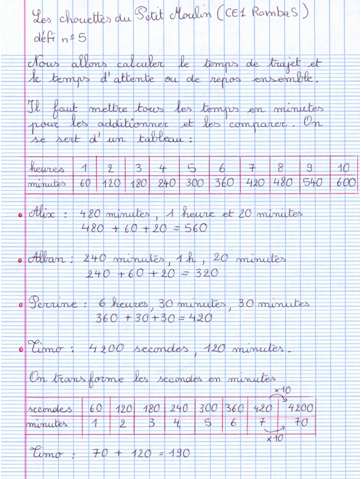 Les chouettes du Petit Moulin (CE1 Rombas)
défi n°5
Nous allons calculer le temps de trajet et
le temps d'attente ou de repos ensemble.
Il faut mettre tous les temps en minutes
pour les additionner et les comparer. On
se sert d'un tableau :
heures 1 2 3 4 5 6 7 8 9 10
minutes 60 120 180 240 300 360 420 480 540 600
• Alix : 480 minutes, 1 heure et 20 minutes
480 + 60 + 20 = 560
• Alban : 240 minutes, 1 h, 20 minutes
240 + 60 + 20 = 320
• Perrine : 6 heures, 30 minutes, 30 minutes
360 + 30 + 30 = 420
• Timo : 4200 secondes, 120 minutes.
On transforme les secondes en minutes
×10
secondes 60 120 180 240 300 360 420 4200
minutes 1 2 3 4 5 6 7 70
×10
Timo : 70 + 120 = 190